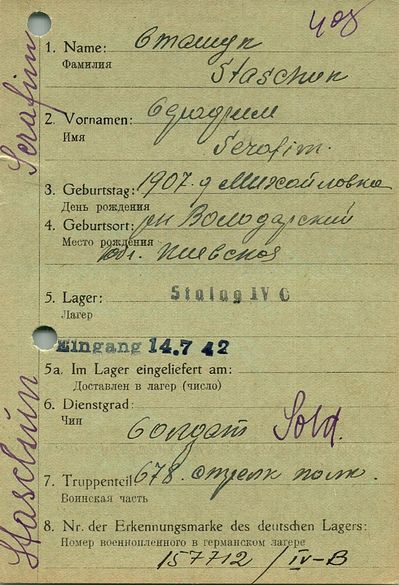 408
1. Name: Сташук
Фамилия
Staschuk
2. Vornamen: Серафим
Имя
Serafim.
3. Geburtstag: 1907. д Михайловка
День рождения
4. Geburtsort: рн Володарский
Место рождения
обл. Киевская
5. Lager: Stalag IV C
Лагер
Eingang 14.7 42
5a. Im Lager eingeliefert am:
Доставлен в лагер (число)
6. Dienstgrad:
Чин
Солдат Sold.
7. Truppenteil 678. стрелк полк.
Воинская часть
8. Nr. der Erkennungsmarke des deutschen Lagers:
Номер военнопленного в германском лагере
157712/IV-B
Staschun
Serafim